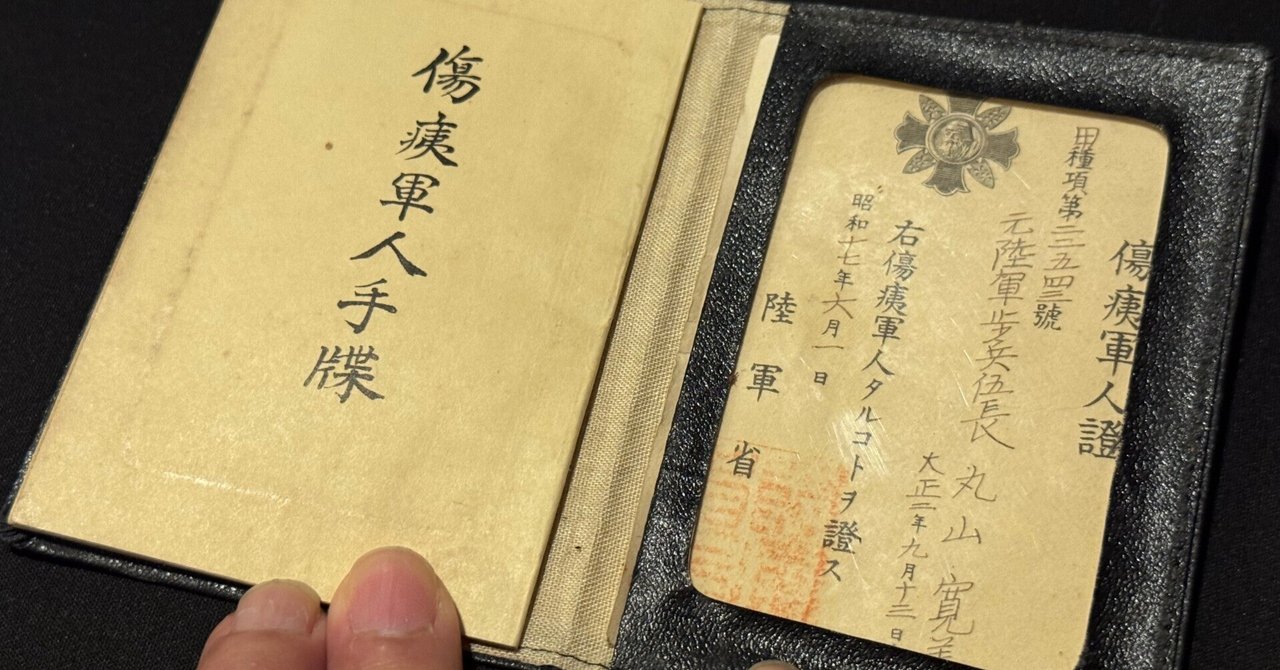 傷痍軍人手牒
傷痍軍人證
第二二五四三號
元陸軍步兵伍長 丸山 寬
大正二年九月十三日
右傷痍軍人タルコトヲ證ス
昭和十七年六月一日
陸軍省